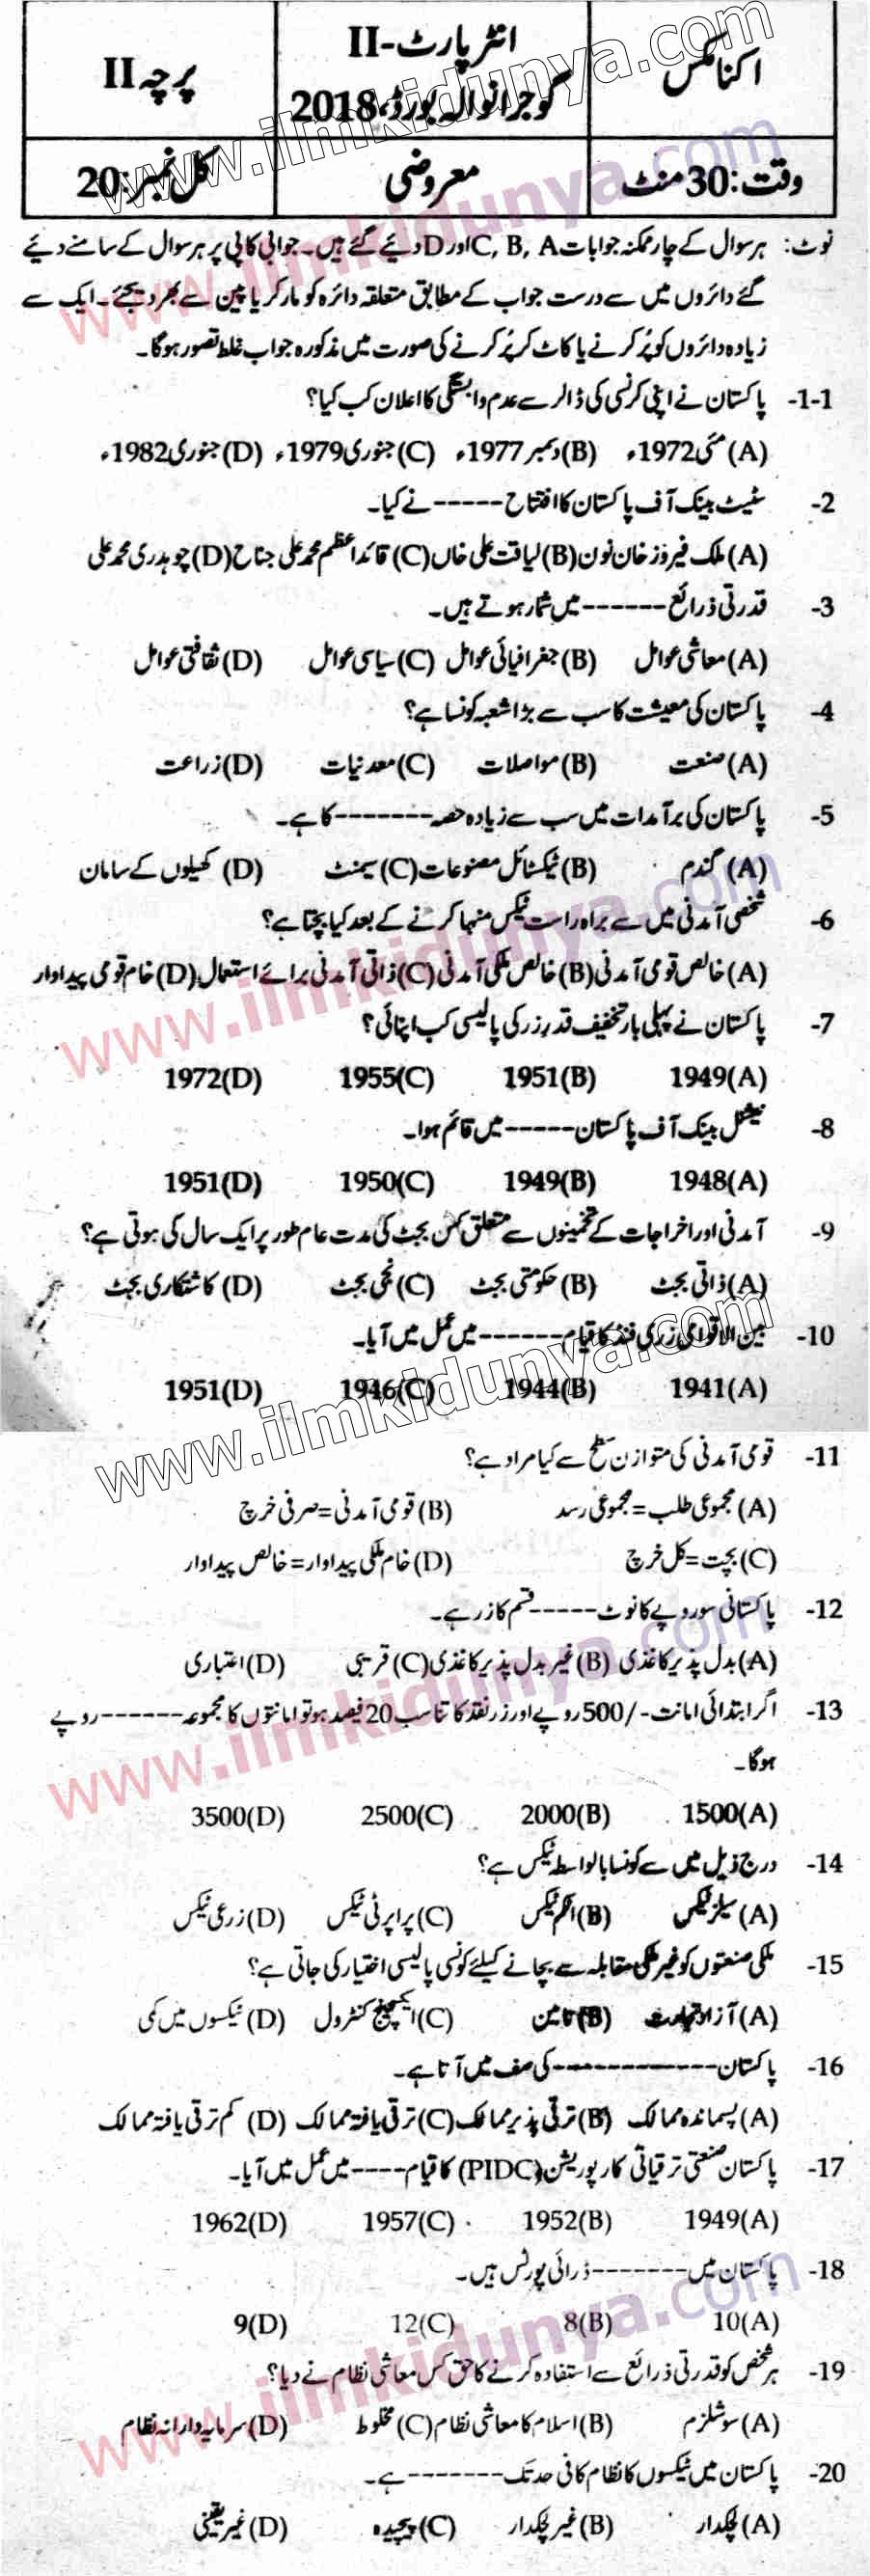 اکنامکس
انٹر پارٹ-II
گوجرانوالہ بورڈ، 2018
پرچہ II
وقت: 30 منٹ
معروضی
کل نمبر: 20
نوٹ: ہر سوال کے چار ممکنہ جوابات C, B, A اور D دئیے گئے ہیں۔ جوابی کاپی پر ہر سوال کے سامنے دئیے
گئے دائروں میں سے درست جواب کے مطابق متعلقہ دائرہ کو مارکر یا پین سے بھر دیجئے۔ ایک سے
زیادہ دائروں کو پُر کرنے یا کاٹ کر پُر کرنے کی صورت میں مذکورہ جواب غلط تصور ہوگا۔
1-1- پاکستان نے اپنی کرنسی کی ڈالر سے عدم وابستگی کا اعلان کب کیا؟
(A) مئی 1972ء (B) دسمبر 1977ء (C) جنوری 1979ء (D) جنوری 1982ء
2- سٹیٹ بینک آف پاکستان کا افتتاح ----- نے کیا۔
(A) ملک فیروز خان نون (B) لیاقت علی خاں (C) قائداعظم محمد علی جناح (D) چوہدری محمد علی
3- قدرتی ذرائع ------ میں شمار ہوتے ہیں۔
(A) معاشی عوامل (B) جغرافیائی عوامل (C) سیاسی عوامل (D) ثقافتی عوامل
4- پاکستان کی معیشت کا سب سے بڑا شعبہ کونسا ہے؟
(A) صنعت (B) مواصلات (C) معدنیات (D) زراعت
5- پاکستان کی برآمدات میں سب سے زیادہ حصہ ------- کا ہے۔
(A) گندم (B) ٹیکسٹائل مصنوعات (C) سیمنٹ (D) کھیلوں کے سامان
6- شخصی آمدنی میں سے براہ راست ٹیکس منہا کرنے کے بعد کیا بچتا ہے؟
(A) خالص قومی آمدنی (B) خالص ملکی آمدنی (C) ذاتی آمدنی برائے استعمال (D) خام قومی پیداوار
7- پاکستان نے پہلی بار تخفیف قدر زر کی پالیسی کب اپنائی؟
1949(A) 1951(B) 1955(C) 1972(D)
8- نیشنل بینک آف پاکستان ----- میں قائم ہوا۔
1948(A) 1949(B) 1950(C) 1951(D)
9- آمدنی اور اخراجات کے تخمینوں سے متعلق کس بجٹ کی مدت عام طور پر ایک سال کی ہوتی ہے؟
(A) ذاتی بجٹ (B) حکومتی بجٹ (C) نجی بجٹ (D) کاشتکاری بجٹ
10- بین الاقوامی زری فنڈ کا قیام ------ میں عمل میں آیا۔
1941(A) 1944(B) 1946(C) 1951(D)
11- قومی آمدنی کی متوازن سطح سے کیا مراد ہے؟
(A) مجموعی طلب = مجموعی رسد (B) قومی آمدنی = صرفی خرچ
(C) بچت = کل خرچ (D) خام ملکی پیداوار = خالص پیداوار
12- پاکستانی سو روپے کا نوٹ ----- قسم کا زر ہے۔
(A) بدل پذیر کاغذی (B) غیر بدل پذیر کاغذی (C) قریبی (D) اعتباری
13- اگر ابتدائی امانت -/500 روپے اور زر نقد کا تناسب 20 فیصد ہو تو امانتوں کا مجموعہ ------ روپے
ہوگا۔
1500(A) 2000(B) 2500(C) 3500(D)
14- درج ذیل میں سے کونسا بالواسطہ ٹیکس ہے؟
(A) سیلز ٹیکس (B) انکم ٹیکس (C) پراپرٹی ٹیکس (D) زرعی ٹیکس
15- ملکی صنعتوں کو غیر ملکی مقابلہ سے بچانے کیلئے کونسی پالیسی اختیار کی جاتی ہے؟
(A) آزاد تجارت (B) تامین (C) ایکسچینج کنٹرول (D) ٹیکسوں میں کمی
16- پاکستان ------------ کی صف میں آتا ہے۔
(A) پسماندہ ممالک (B) ترقی پذیر ممالک (C) ترقی یافتہ ممالک (D) کم ترقی یافتہ ممالک
17- پاکستان صنعتی ترقیاتی کارپوریشن (PIDC) کا قیام ---- میں عمل میں آیا۔
1949(A) 1952(B) 1957(C) 1962(D)
18- پاکستان میں ------- ڈرائی پورٹس ہیں۔
10(A) 8(B) 12(C) 9(D)
19- ہر شخص کو قدرتی ذرائع سے استفادہ کرنے کا حق کس معاشی نظام نے دیا؟
(A) سوشلزم (B) اسلام کا معاشی نظام (C) مخلوط (D) سرمایہ دارانہ نظام
20- پاکستان میں ٹیکسوں کا نظام کافی حد تک ------- ہے۔
(A) لچکدار (B) غیر لچکدار (C) پیچیدہ (D) غیر یقینی
www.ilmkidunya.com
www.ilmkidunya.com
www.ilmkidunya.com
www.ilmkidunya.com
www.ilmkidunya.com
www.ilmkidunya.com